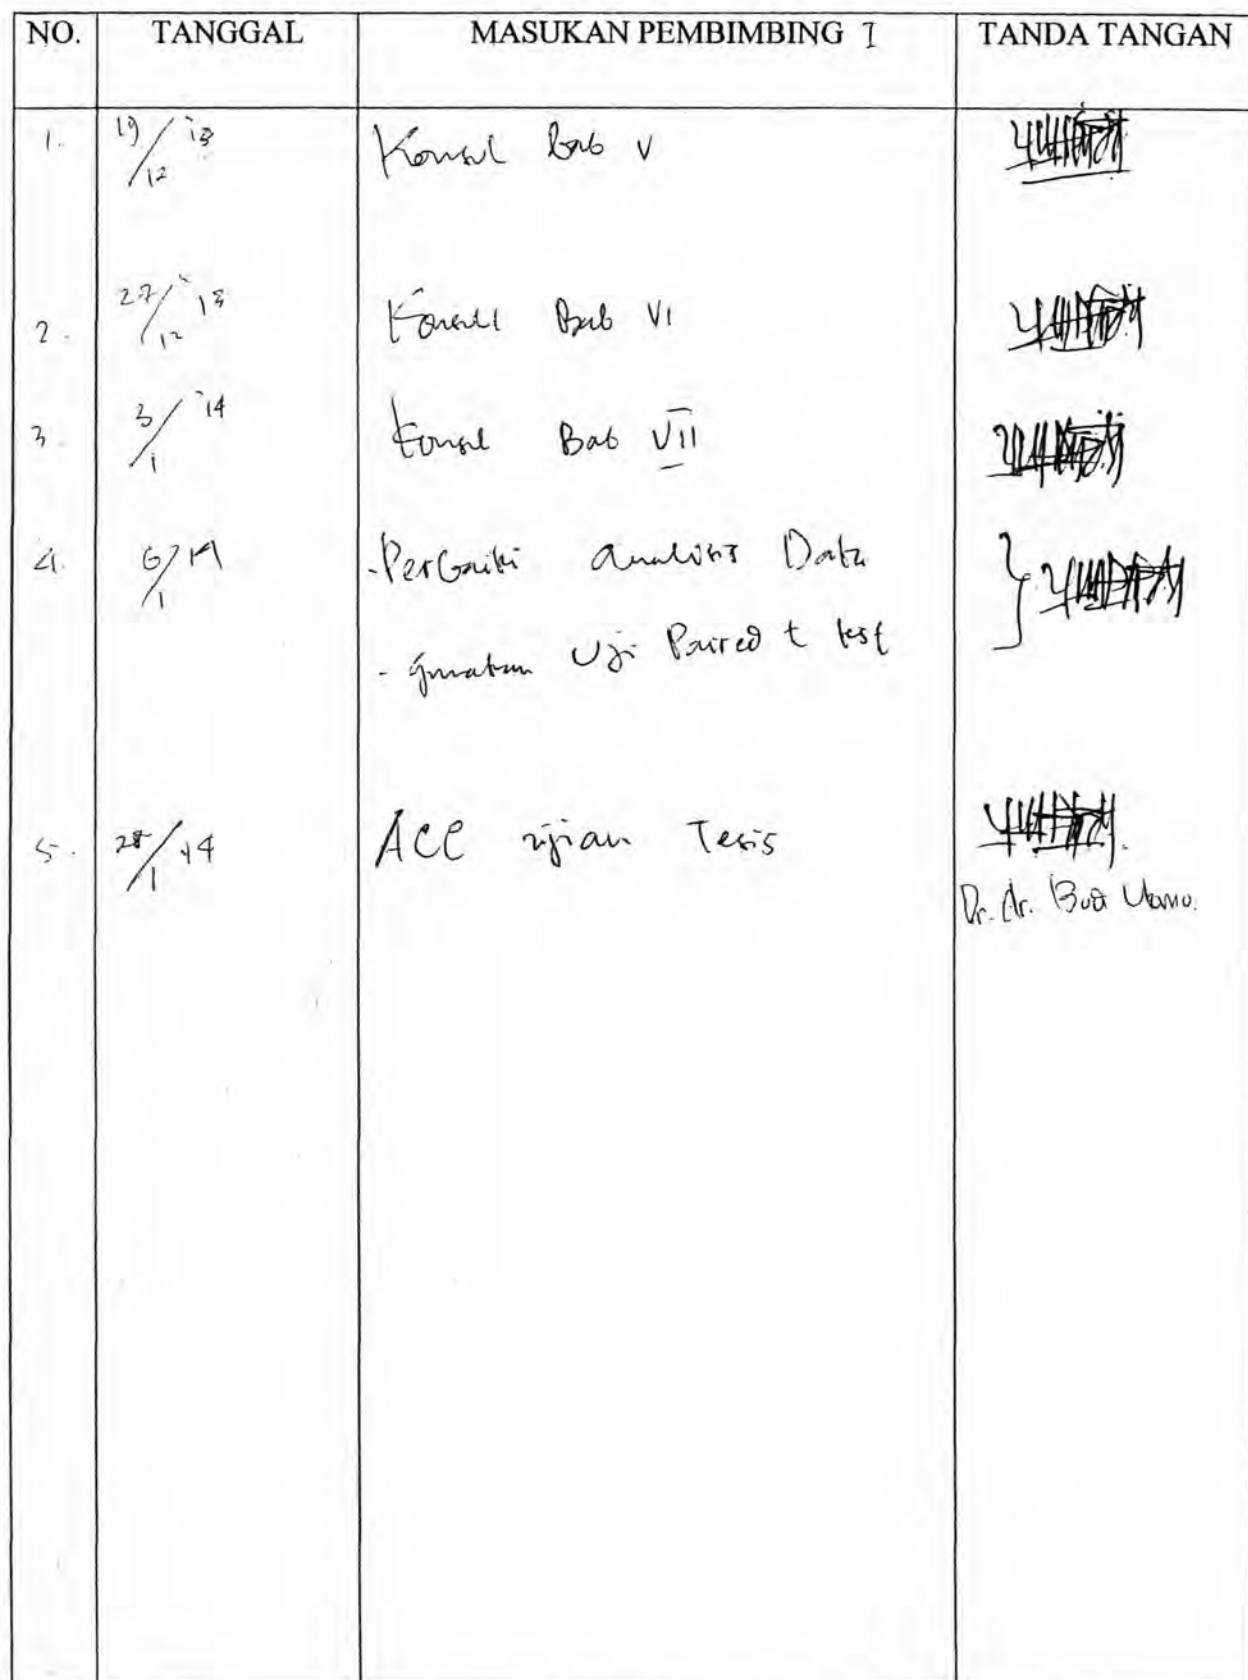 NO. TANGGAL MASUKAN PEMBIMBING I TANDA TANGAN
1. 19/12 '13 Konsul bab V
2. 27/12 '13 Konsul Bab VI
3. 3/1 '14 Konsul Bab VII
4. 6/1 14 - Perbaiki analisis Data
- gunakan Uji Paired t test
5. 28/1 14 ACC ujian Tesis
Dr. dr. Budi Utomo.